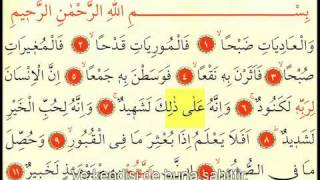 بِسْمِ اللّٰهِ الرَّحْمٰنِ الرَّحِيمِ
وَالْعَادِيَاتِ ضَبْحًا ﴿١﴾ فَالْمُورِيَاتِ قَدْحًا ﴿٢﴾ فَالْمُغِيرَاتِ
صُبْحًا ﴿٣﴾ فَاَثَرْنَ بِهِ نَقْعًا ﴿٤﴾ فَوَسَطْنَ بِهِ جَمْعًا ﴿٥﴾ اِنَّ الْاِنْسَانَ
لِرَبِّهِ لَكَنُودٌ ﴿٦﴾ وَاِنَّهُ عَلٰى ذٰلِكَ لَشَهِيدٌ ﴿٧﴾ وَاِنَّهُ لِحُبِّ الْخَيْرِ
لَشَدِيدٌ ﴿٨﴾ اَفَلَا يَعْلَمُ اِذَا بُعْثِرَ مَا فِى الْقُبُورِ ﴿٩﴾ وَحُصِّلَ
مَا فِى الصُّدُورِ ﴿١٠﴾ اِنَّ رَبَّهُمْ بِهِمْ يَوْمَئِذٍ لَخَبِيرٌ ﴿١١﴾
Ve kendisi de buna şahittir